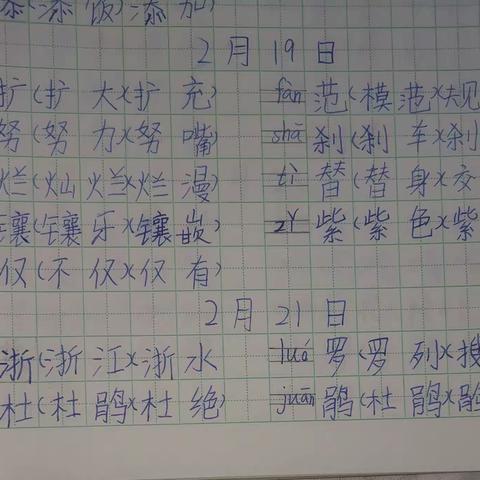 添(添饭)(添加)
2月19日
扩(扩大)(扩充) fàn 范(模范)(规
努(努力)(努嘴) shā 刹(刹车)(刹
烂(灿烂)(烂漫) tì 替(替身)(交
镶(镶牙)(镶嵌) zǐ 紫(紫色)(紫
仅(不仅)(仅有)
2月21日
浙(浙江)(浙水 luó 罗(罗列)(搜
杜(杜鹃)(杜绝) juān 鹃(杜鹃)(鹃